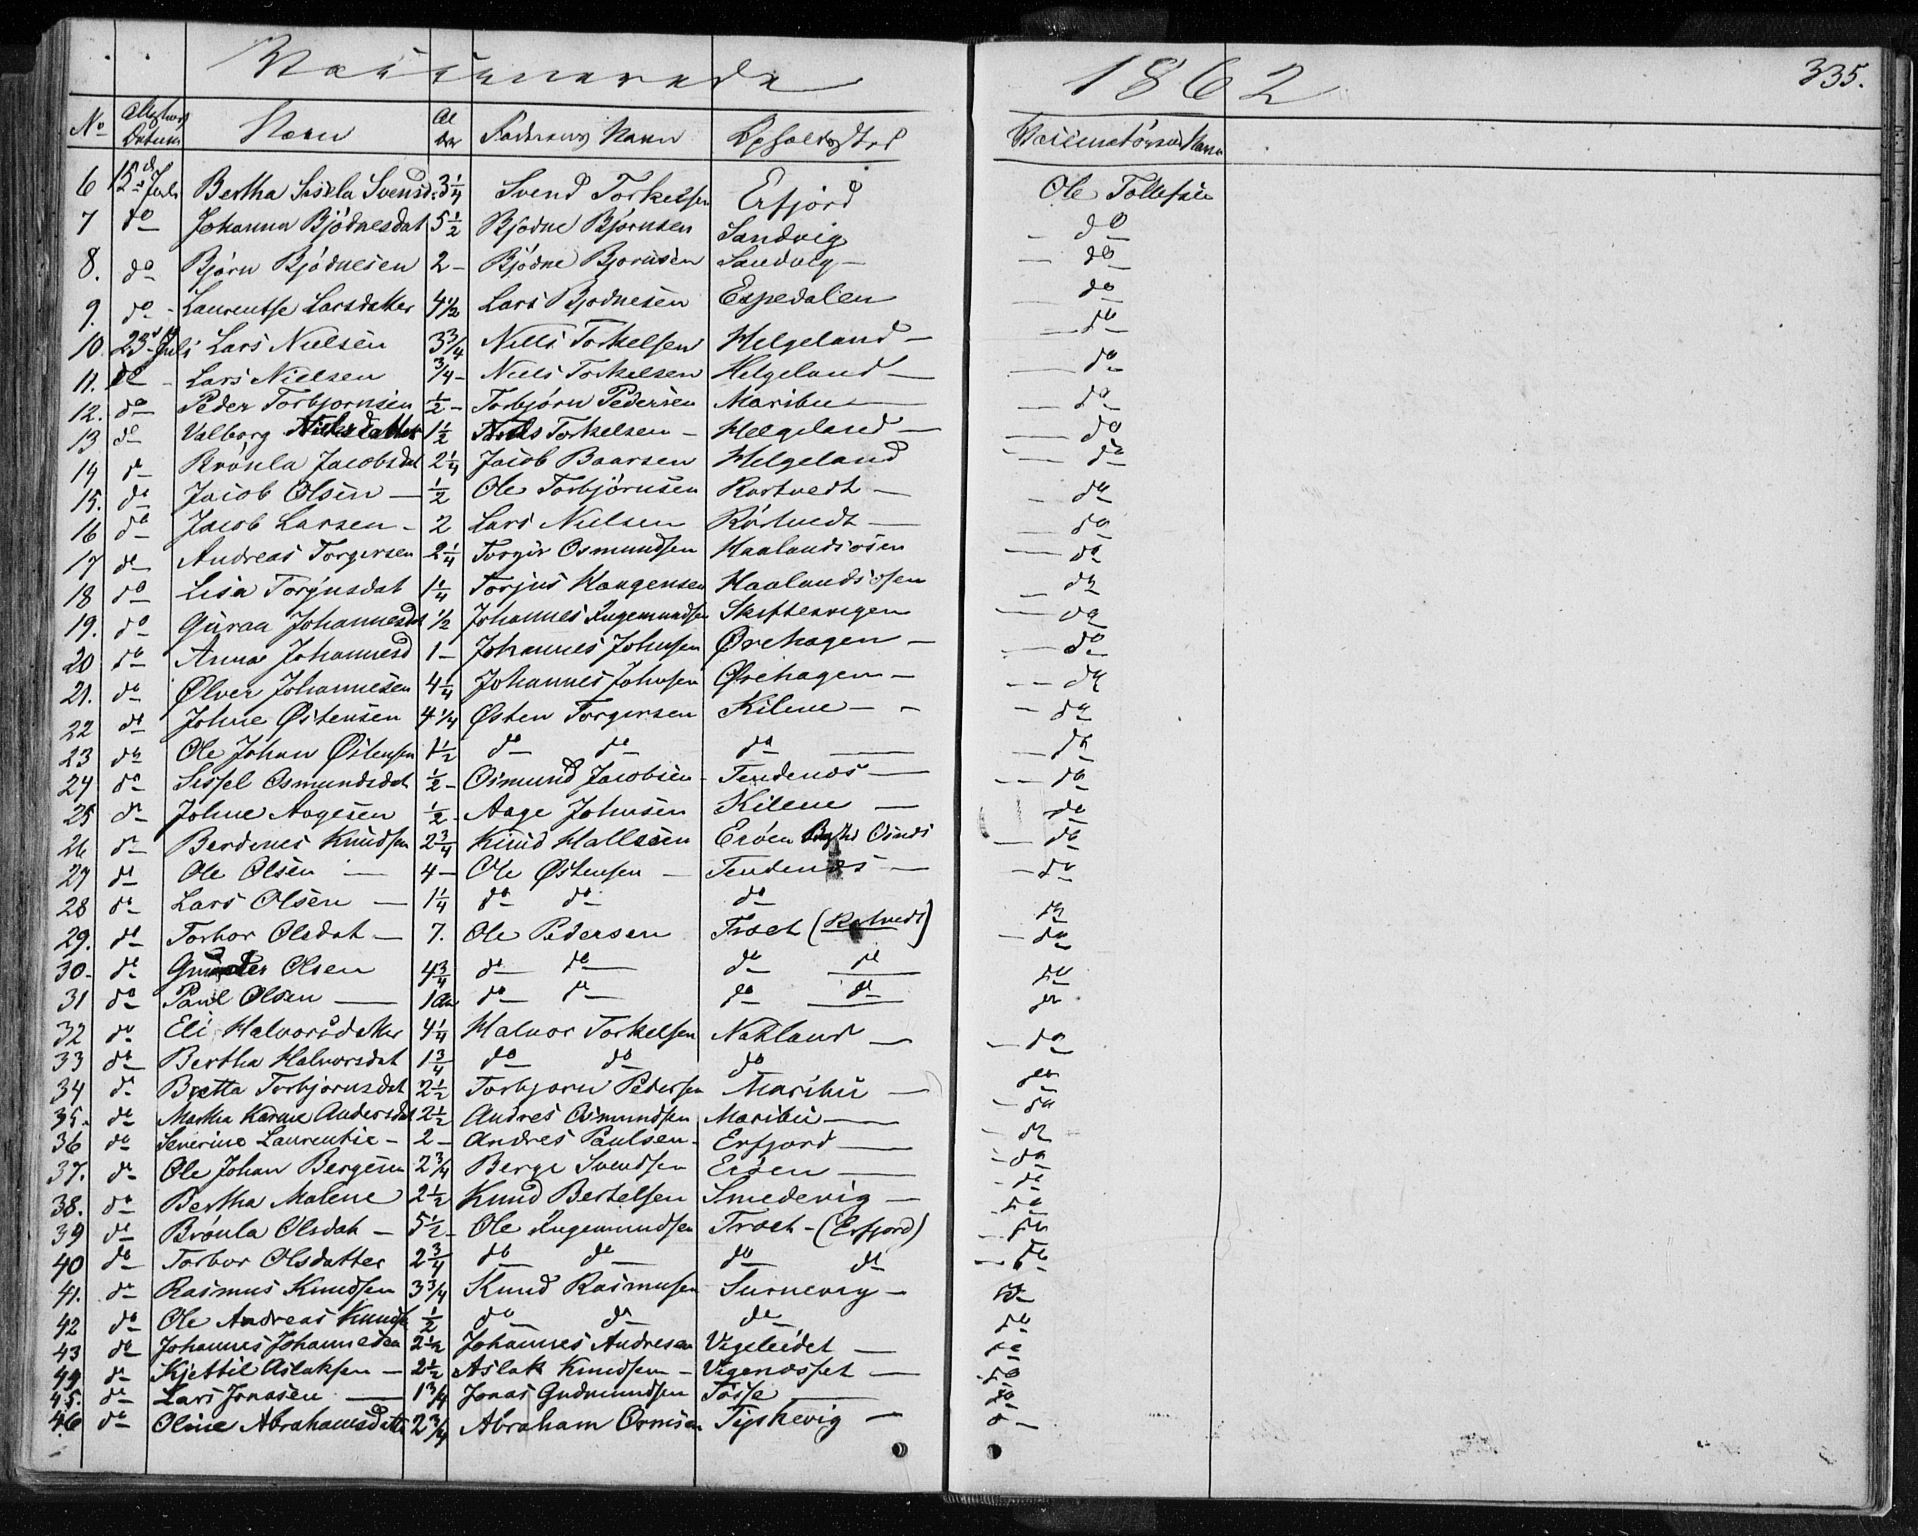 Vaccinerede 1862 335.
No Datum Navn Al der Faderens Navn Opholdssted Vaccinatørens Navn
6 15de Juli Bertha Sisela Svensd. 3¼ Svend Torkelsen Erfjord Ole Tollefsen
7 do Johanna Bjødnesdat 5½ Bjødne Bjørnsen Sandvig — do
8. do Bjørn Bjødnesen 2 — Bjødne Bjørnsen Sandvig — — do
9. do - Laurentse Larsdatter 4½ Lars Bjødnesen Espedalen — do
10. 23de Juli Lars Nielsen 3¾ Niels Torkelsen Helgeland — — do
11. do - Lars Nielsen ¾ - Niels Torkelsen Helgeland — — do
12. do Peder Torbjørnsen ½ - Torbjørn Pedersen Maribu — — do
13 do Valborg Nielsdatter 1½ Niels Torkelsen — Helgeland — — do
14 do Brønla Jacobsdat 2¼ Jacob Baarsen Helgeland — do
15. do Jacob Olsen — ½ Ole Torbjørnsen Rørtvedt — — do
16 do Jacob Larsen - 2 Lars Nielsen Rørtvedt — — do
17 do Andreas Torgersen 2¼ Torger Osmundsen Haalandsosen — do
18 do Lisa Torjusdat 1¼ Torjus Haagensen Haalandsosen — do
19. do Guroa Johannesdt 1½ Johannes Ingemundsen Skiftesvigen — do
20 do Anna Johannesd 1 — Johannes Johnsen Ørehagen — — do
21. do Ølver Johannesen 4¼ Johannes Johnsen Ørehagen — — do
22 do Johne Østensen 4¼ Østen Torgersen Kilene — - — do
23 do Ole Johan Østensen 1½ do do do — — do
24 do Sissel Osmundsdat ½ - Osmund Jacobsen - Tendenes — — do
25 do Johne Aagesen ½ - Aage Johnsen Kilene — do
26 do Berdines Knudsen 2¾ Knud Hallesen Erøen — do
27 do Ole Olsen — 4 — Ole Østensen — Tendenes — — do
28 do Lars Olsen — 1¼ do do do do
29. do Torbor Olsdat — 7. Ole Pedersen Troet (Rørtvedt) — do
30. do Olsen 4¾ do do do do do
31 do Paul Olsen — 1 do do do do do
32 do Eli Halvorsdatter 4¼ Halvor Torkelsen Nahland — — do
33 do Bertha Halvorsdat 1¾ do do do
34 do Bretta Torbjørnsdat 2½ Torbjørn Pedersen Maribu — do
35. do Martha Karine Andersdat 2½ Andres Osmundsen Maribu — — do
36 do Severine Laurentie - 2 - Andres Paulsen - Erfjord — — do
37. do Ole Johan Bergesen 2¾ Berge Svendsen Erøen — — do
38. do Bertha Malene 2½ Knud Bertelsen Smedevig — — do
39 do Brønla Olsdat — 5½ - Ole Ingemundsen Troet - (Erfjord) — do
40 do Torbor Olsdatter 2¾ do do do do — do
41. do Rasmus Knudsen 3¾ Knud Rasmusen Turnevig — do
42 do Ole Andreas Knudse ½ do do do do
43 do Johannes Johannesen 2½ Johannes Andresen Vigeleidet — do
44 do Kjettil Aslaksen — 2½ Aslak Knudsen — Vigenesset — do
45. do Lars Jonasen — 1¾ Jonas Gudmundsen Tøsse — do
46 do Oline Abrahamsdatte 2¾ Abraham Ormsen Tyskevig — do